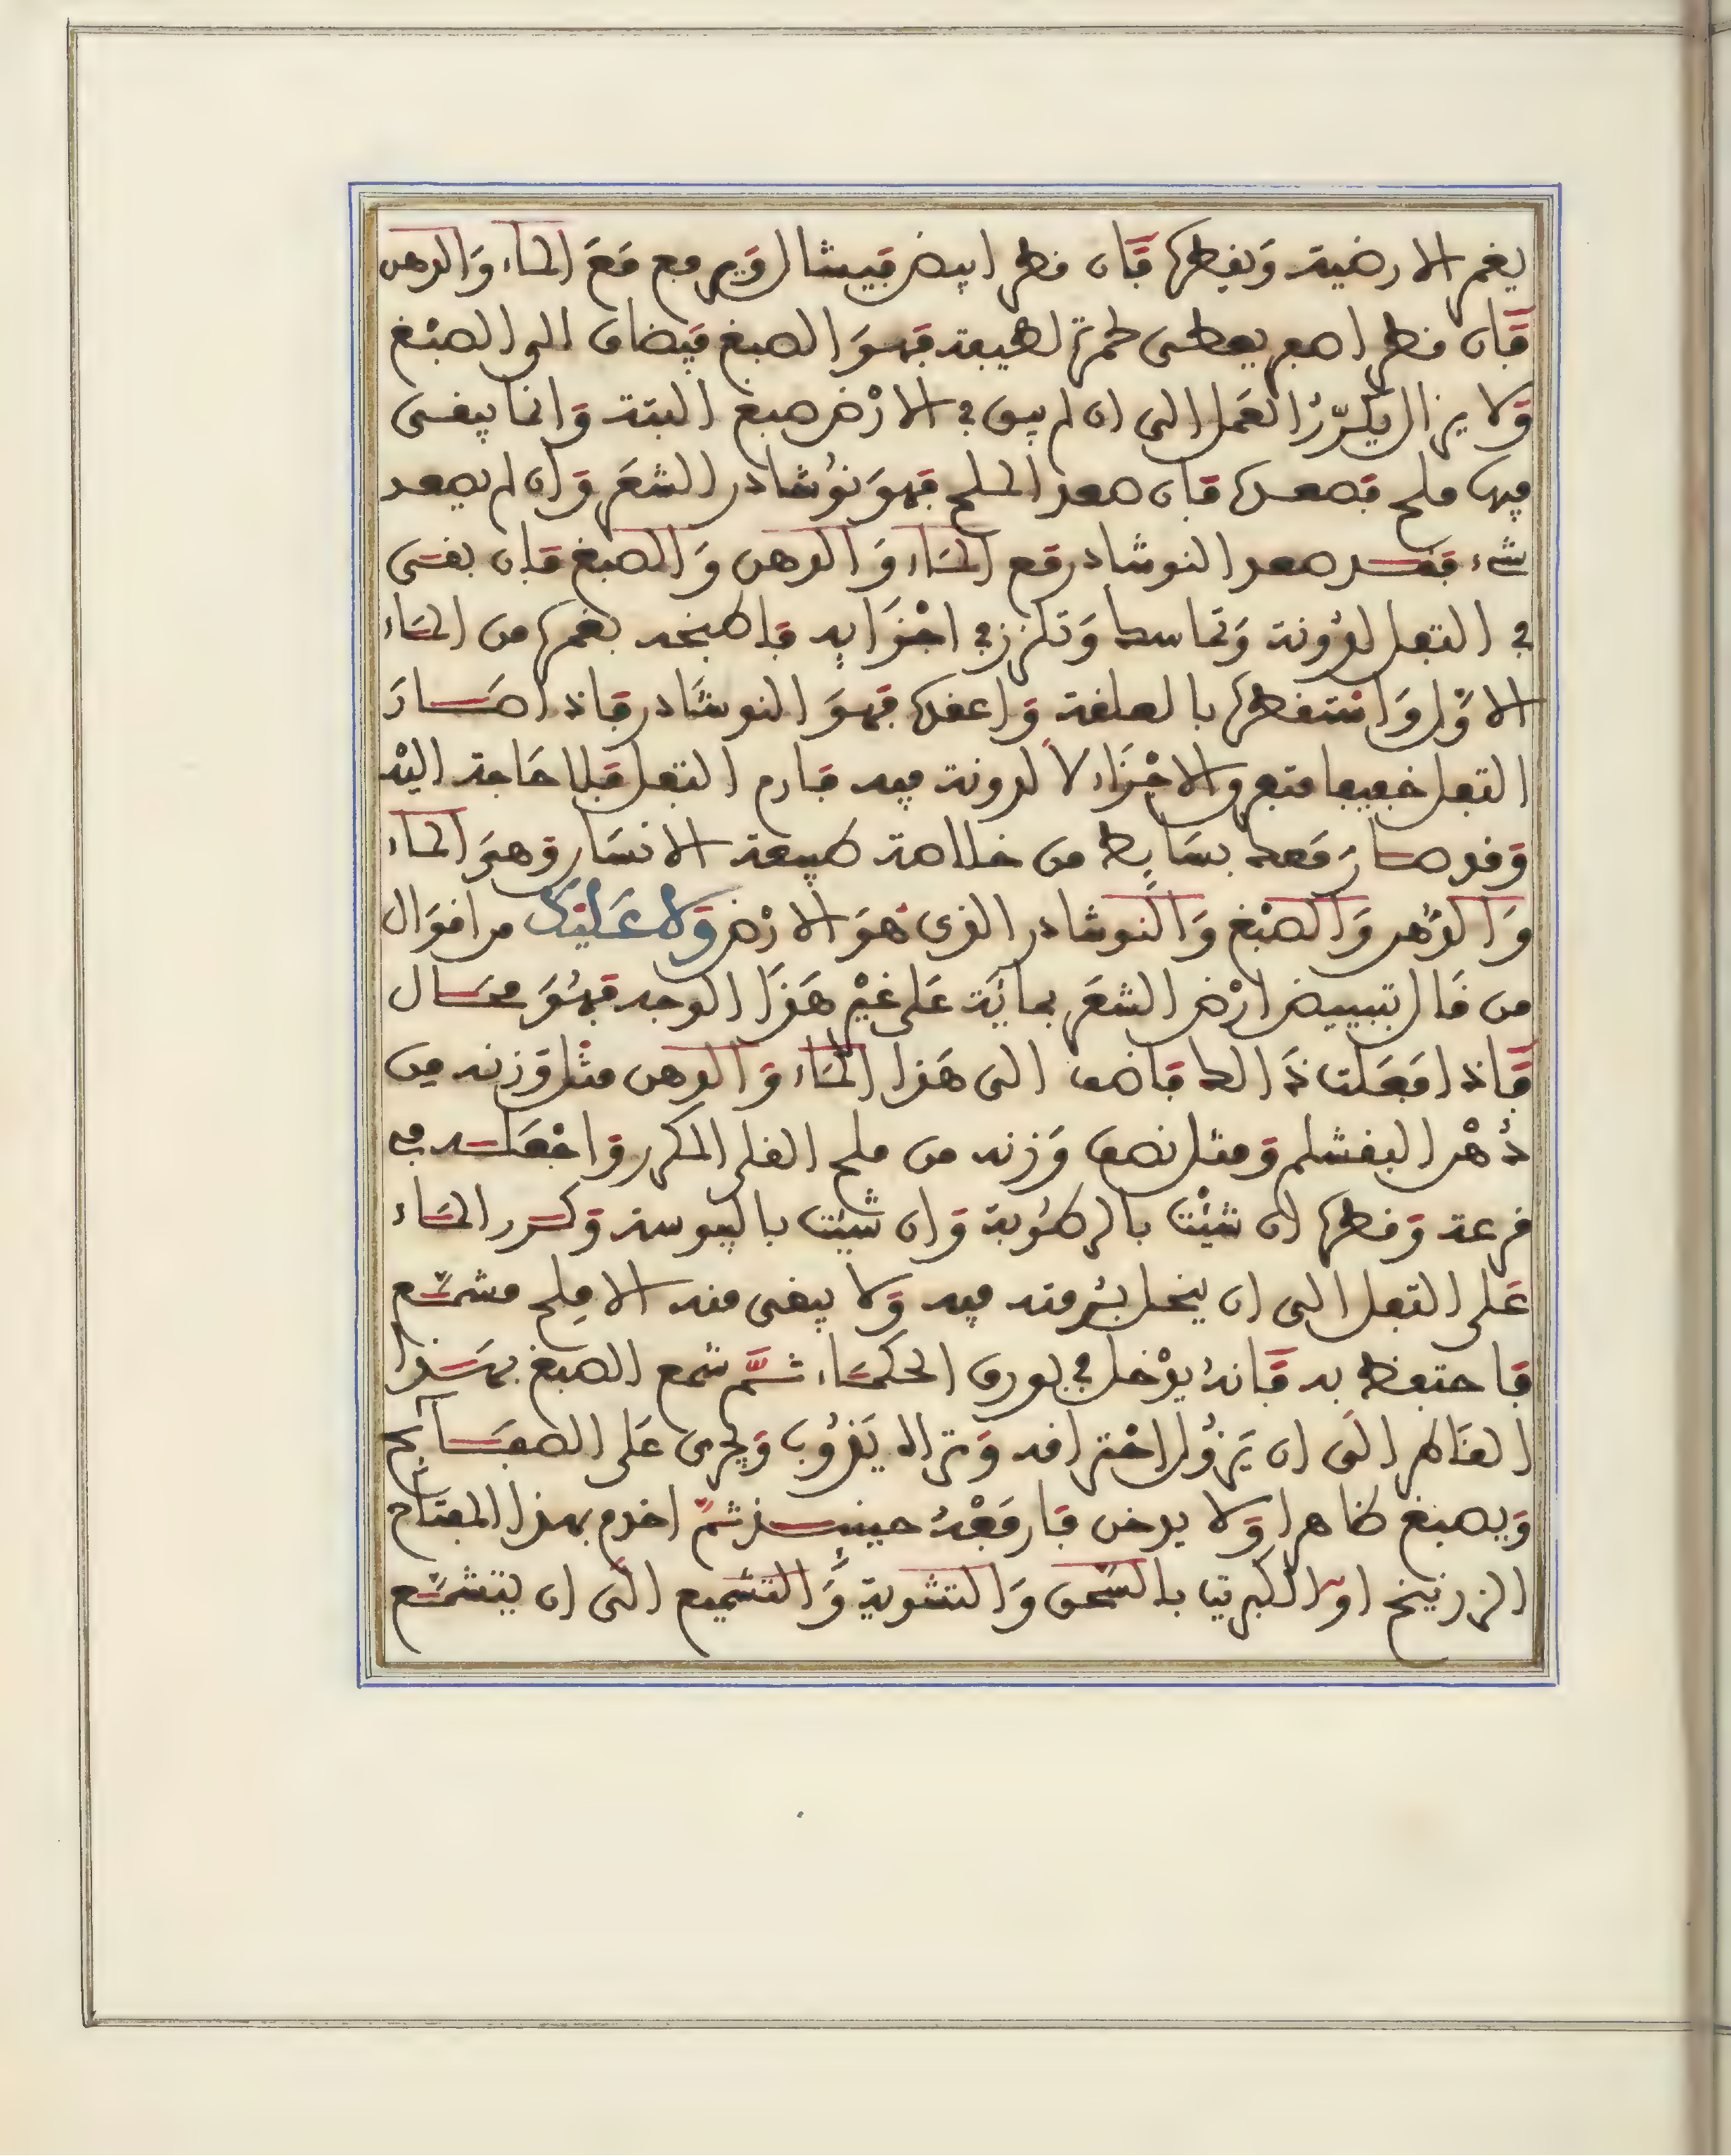 يغمر الارضية وَيفطرها فَان فطر ابيض فيشال وَيرفع مَعَ الماء وَالدهن
فَان فطر اصفر يعطى حمرة لطيفة فهوَ الصبغ فيضاف الى الصبْغ
وَلا يزال يكرّرُ العَمل الى ان لم يبق في الارْض صبغ البتة وَانما يبقى
فيها ملح فصعدها فان صعد الملح فهوَ نوُشادر الشعَر وَان لم يصعد
شيء فقد صعد النوشادر مع المَاء وَالدهن وَالصبغ فان بقى
في التفل لدُونة وَتماسك وَتلزز في اجْزَايه فاطبخه بغمرها من المَاء
الاوْل وَاسْتقطرها بالعلقة وَاعقدها فهوَ النوشَادر فاذا صَارَ
التفل خفيفا متفرق الاجْزَاء لا لدونة فيه فارم التفل فلا حَاجة اليْه
وَقد صار مَعك بسَايط من خلاصة طبيعة الانسَان وَهىَ الماء
وَالدُهن وَالصبْغ وَالنوشادر الذى هوَ الارْض وَلا عَليْك من اقوَال
من قال بتبييض ارْض الشعَر بمايَة عَلى غيْر هَذا الوجه فهُوَ محَال
فَاذا فَعَلت ذَالك فاضف الى هَذا المَاء وَالدهن مثْل وَزنه من
دُهْن البقشلم وَمثل نصف وَزنه من ملح القلى المكرر وَاجْعَله في
قرعة وَقطرها ان شيْت بالرطُوبة وَان شيْت باليبوسة وَكرر المَاء
عَلى التفل الى ان ينحل برُمته فيه وَلا يبقى منه الا مِلح مشمّع
فاحتفظ به فَانهُ يدْخل في بورق الحكمَاء ثمَّ شمع الصبغ بهَذا
القَاطر الَى ان يَزوُل احْتراقه وَتراه يَذوُب وَيجرى عَلى الصفَايح
وَيصبغ ظاهرا وَلا يدخن فارفعْهُ حينيذ ثمَّ اخدم بهذا المفتاح
الزرنيخ اوِ الكبريت بالسَحق وَالتشوية وَالتشميع الَى ان يتشمّع